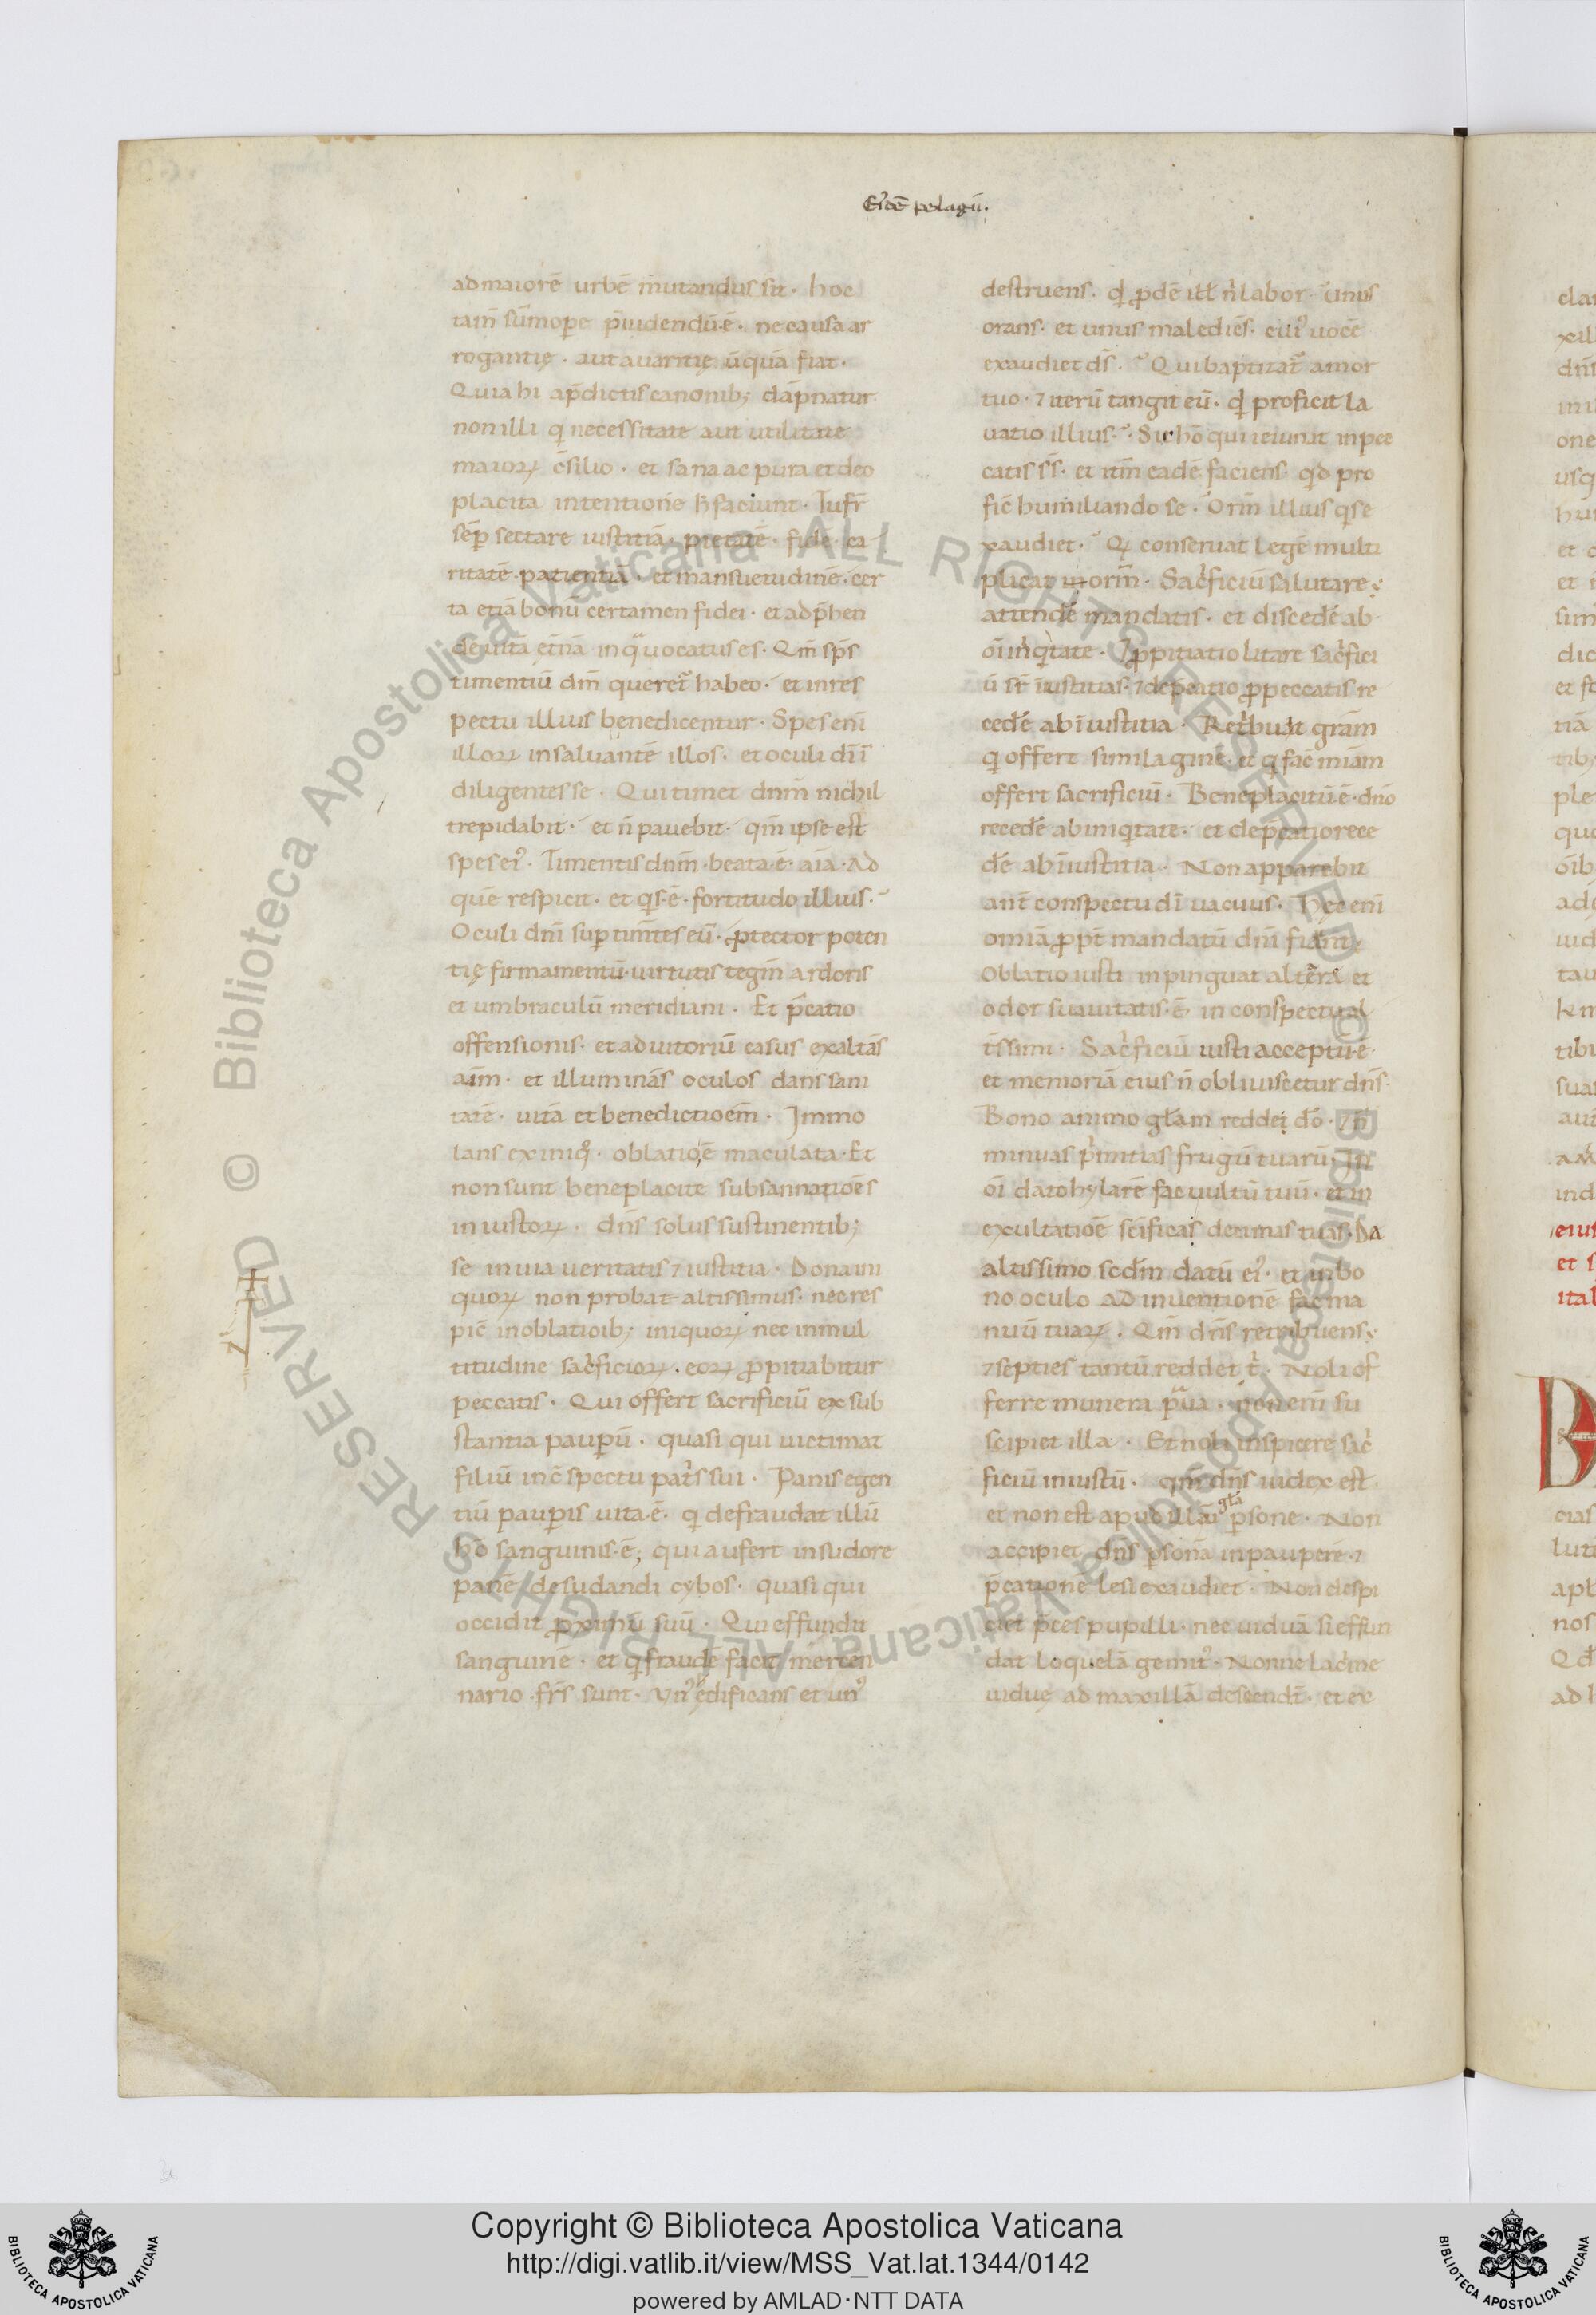 Ei᷒dē pelagii.
ad maiorē urbē mutandus sit. hoc
tam̄ sūmope p̄uidendū.ē. ne causa ar
rogantię. aut avaritię ūquā fiat.
Quia hi ap̄dictis canonib; dāpnatur.
non illi q̨ necessitate aut utilitate
maioꝝ c̄silio. et sana ac pura et deo
placita intentione h̄ faciunt. Tu fr̄
sēp sectare iustitiā. pietatē. fidē. ca
ritatē. patientiā. et mansuetudinē. cer
ta etiā bonū certamen fidei. et ad p̄hen
de uitā et̄nā in qua uocatus es. Qm̄ sp̄s
timentiū dm̄ queret᷒ habeo. et in res
pectu illius benedicentur. Spes eni
illoꝝ in saluantē illos. et oculi dī ī
diligentes se. Qui timet dnm̄ nichil
trepidabit. et n̄ pauebit. qm̄ ipse est
spes ei᷒. Timentis dnm̄. beata.ē. aīa. Ad
quē respicit. et q̨s.ē. fortitudo illius.
Oculi dnī sup timētes eū. ꝓtector poten
tię firmamentū. uirtutis tegm̄ ardoris
et umbraculū meridiani. Et p̄catio
offensionis. et adiutoriū casus exaltās
aīm. et illuminās oculos dans sani
tatē. uitā et benedictioēm. Immo
lans ex iniq᷒. oblatioē maculata. Et
non sunt beneplacite subsannatioēs
iniustoꝝ. dn̄s solus sustinentib;
se in uia ueritatis ⁊ iustitia. Dona ini
quoꝝ non probat altissimus. nec res
pic̄ in oblatioib; iniquoꝝ nec in mul
titudine sac̄ficioꝝ. eoꝝ ꝓpitiabitur
peccatis. Qui offert sacrificiū ex sub
stantia paupū. quasi qui uictimat
filiū in c̄spectu pat̄s sui. Panis egen
tiū paupis uita.ē. q̨ defraudat illū
hō sanguinis.ē; qui aufert in sudore
panē desudandi cybos. quasi qui
occidit ꝓximū suū. Qui effundit
sanguinē. et q̨ fraudē facit mercen
nario. fr̄s sunt. Vn᷒ ędificans et un᷒
destruens. qd̨ ꝓdē ill̄ n̄ labor. Unus
orans. et unus maledic̄s. cui᷒ uocē
exaudiet ds̄. Qui baptizat᷒ a mor
tuo. ⁊ iterū tangit eū. qd̨ proficit la
uatio illius. Sic hō qui ieiunat in pec
catis s̄s. et itm̄ eadē faciens. qd̨ pro
fic̄ humiliando se. Orm̄ illius q̨s e
xaudiet. Qꝫ conseruat legē multi
plicat orm̄. Sac̄ficiū salutare.
attendē mandatis. et discedē ab
oī iniq̨tate. ⁊ ꝓpitiatio litare sac̄fici
ū sr̄ iniustitias. ⁊ dep̄catio ꝓ peccatis re
cedē ab iniustitia. Ret̄buit grām
q̨ offert similaginē. et q̨ fac̄ miām
offert sacrificiū. Beneplacitū.ē. dnō
recedē ab iniq̨tate. et dep̄catio rece
dē ab iniustitia. Non apparebit
ant̄ conspectu dī uacuus. Hęc eni
omīa ꝓpt̄ mandatū dnī fiant.
Oblatio iusti inpinguat altera et
odor suauitatis.ē. in conspectu al
t̄ssimi. Sac̄ficiū iusti acceptū.ē.
et memoriā eius n̄ obliuiscetur dn̄s.
Bono animo gl̄am reddei dō. ⁊ n̄
minuas p̄mitias frugū tuarū. In
oī dato hylarē fac uultū tuū. et in
exultatioē sc̄ifica decimas tuas. Da
altissimo scdm̄ datū ei᷒. et in bo
no oculo ad inuentionē fac ma
nuū tuaꝝ. Qm̄ dn̄s retribuens.
⁊ septies tantū reddet t̄. Noli of
ferre munera p̄ua. non eni su
scipiet illa. Et noli inspicere sac̄
ficiū iniustū. qm̄ dn̄s iudex est
et non est apud illū gl̄a psone. Non
accipiet dn̄s psonā in pauperē. ⁊
p̄cationē lesi exaudiet. Non despi
ciet p̄ces pupilli. nec uiduā si effun
dat loquelā gemit᷒. Nonne lac̄me
uiduę ad maxillā descendt̄. et ex
Copyright © Biblioteca Apostolica Vaticana
http://digi.vatlib.it/view/MSS_Vat.lat.1344/0142
powered by AMLAD·NTT DATA
BIBLIOTECA APOSTOLICA VATICANA
BIBLIOTECA APOSTOLICA VATICANA
© Biblioteca Apostolica Vaticana ALL RIGHTS RESERVED
© Biblioteca Apostolica Vaticana ALL RIGHTS RESERVED